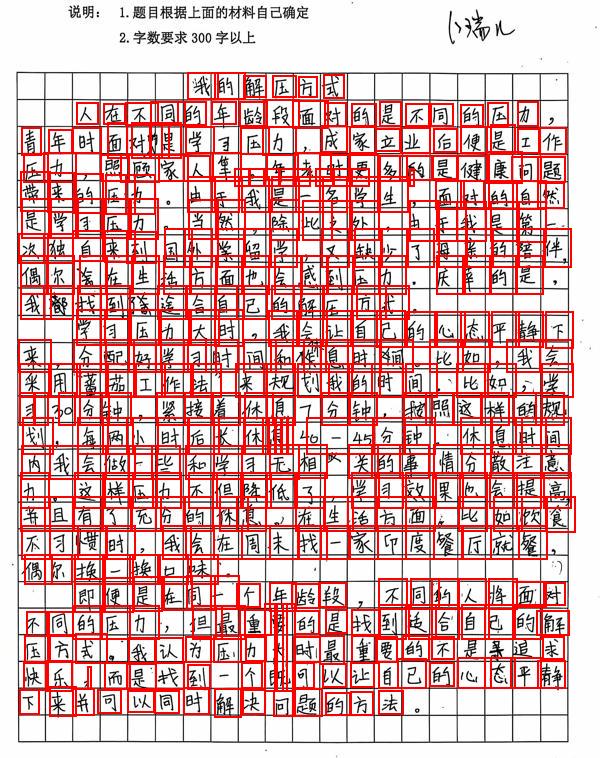 说明： 1.题目根据上面的材料自己确定
2.字数要求300字以上
我的解压方式
人在不同的年龄段面对的是不同的压力，
青年时面对的是学习压力，成家立业后便是工作
压力，照顾家人等。年老时更多的是健康问题
带来的压力。由于我是一名学生，面对的自然
是学习压力。当然，除此之外，由于我是第一
次独自来到国外学留学，又缺少了母亲的陪伴，
偶尔会在生活方面也会感到压力。庆幸的是，
我都找到了适合自己的解压方式。
学习压力大时，我会让自己的心态平静下
来，分配好学习时间和休息时间。比如，我会
采用蕃茄工作法，来规划我的时间。比如，学
习30分钟，紧接着休息7分钟，按照这样的规
划，每两小时后长休息40-45分钟。休息时间
内我会做一些和学习无相关的事情分散注意
力。这样压力不但降低了，学习效果也会提高，
并且有了充分的休息。在生活方面，比如饮食
不习惯时，我会在周末找一家印度餐厅就餐，
偶尔换一换口味。
即便是在同一个年龄段，不同的人将面对
不同的压力，但最重要的是找到适合自己的解
压方式。我认为压力大时最重要的不是寻追求
快乐，而是找到一个既可以让自己的心态平静
下来并可以同时解决问题的方法。